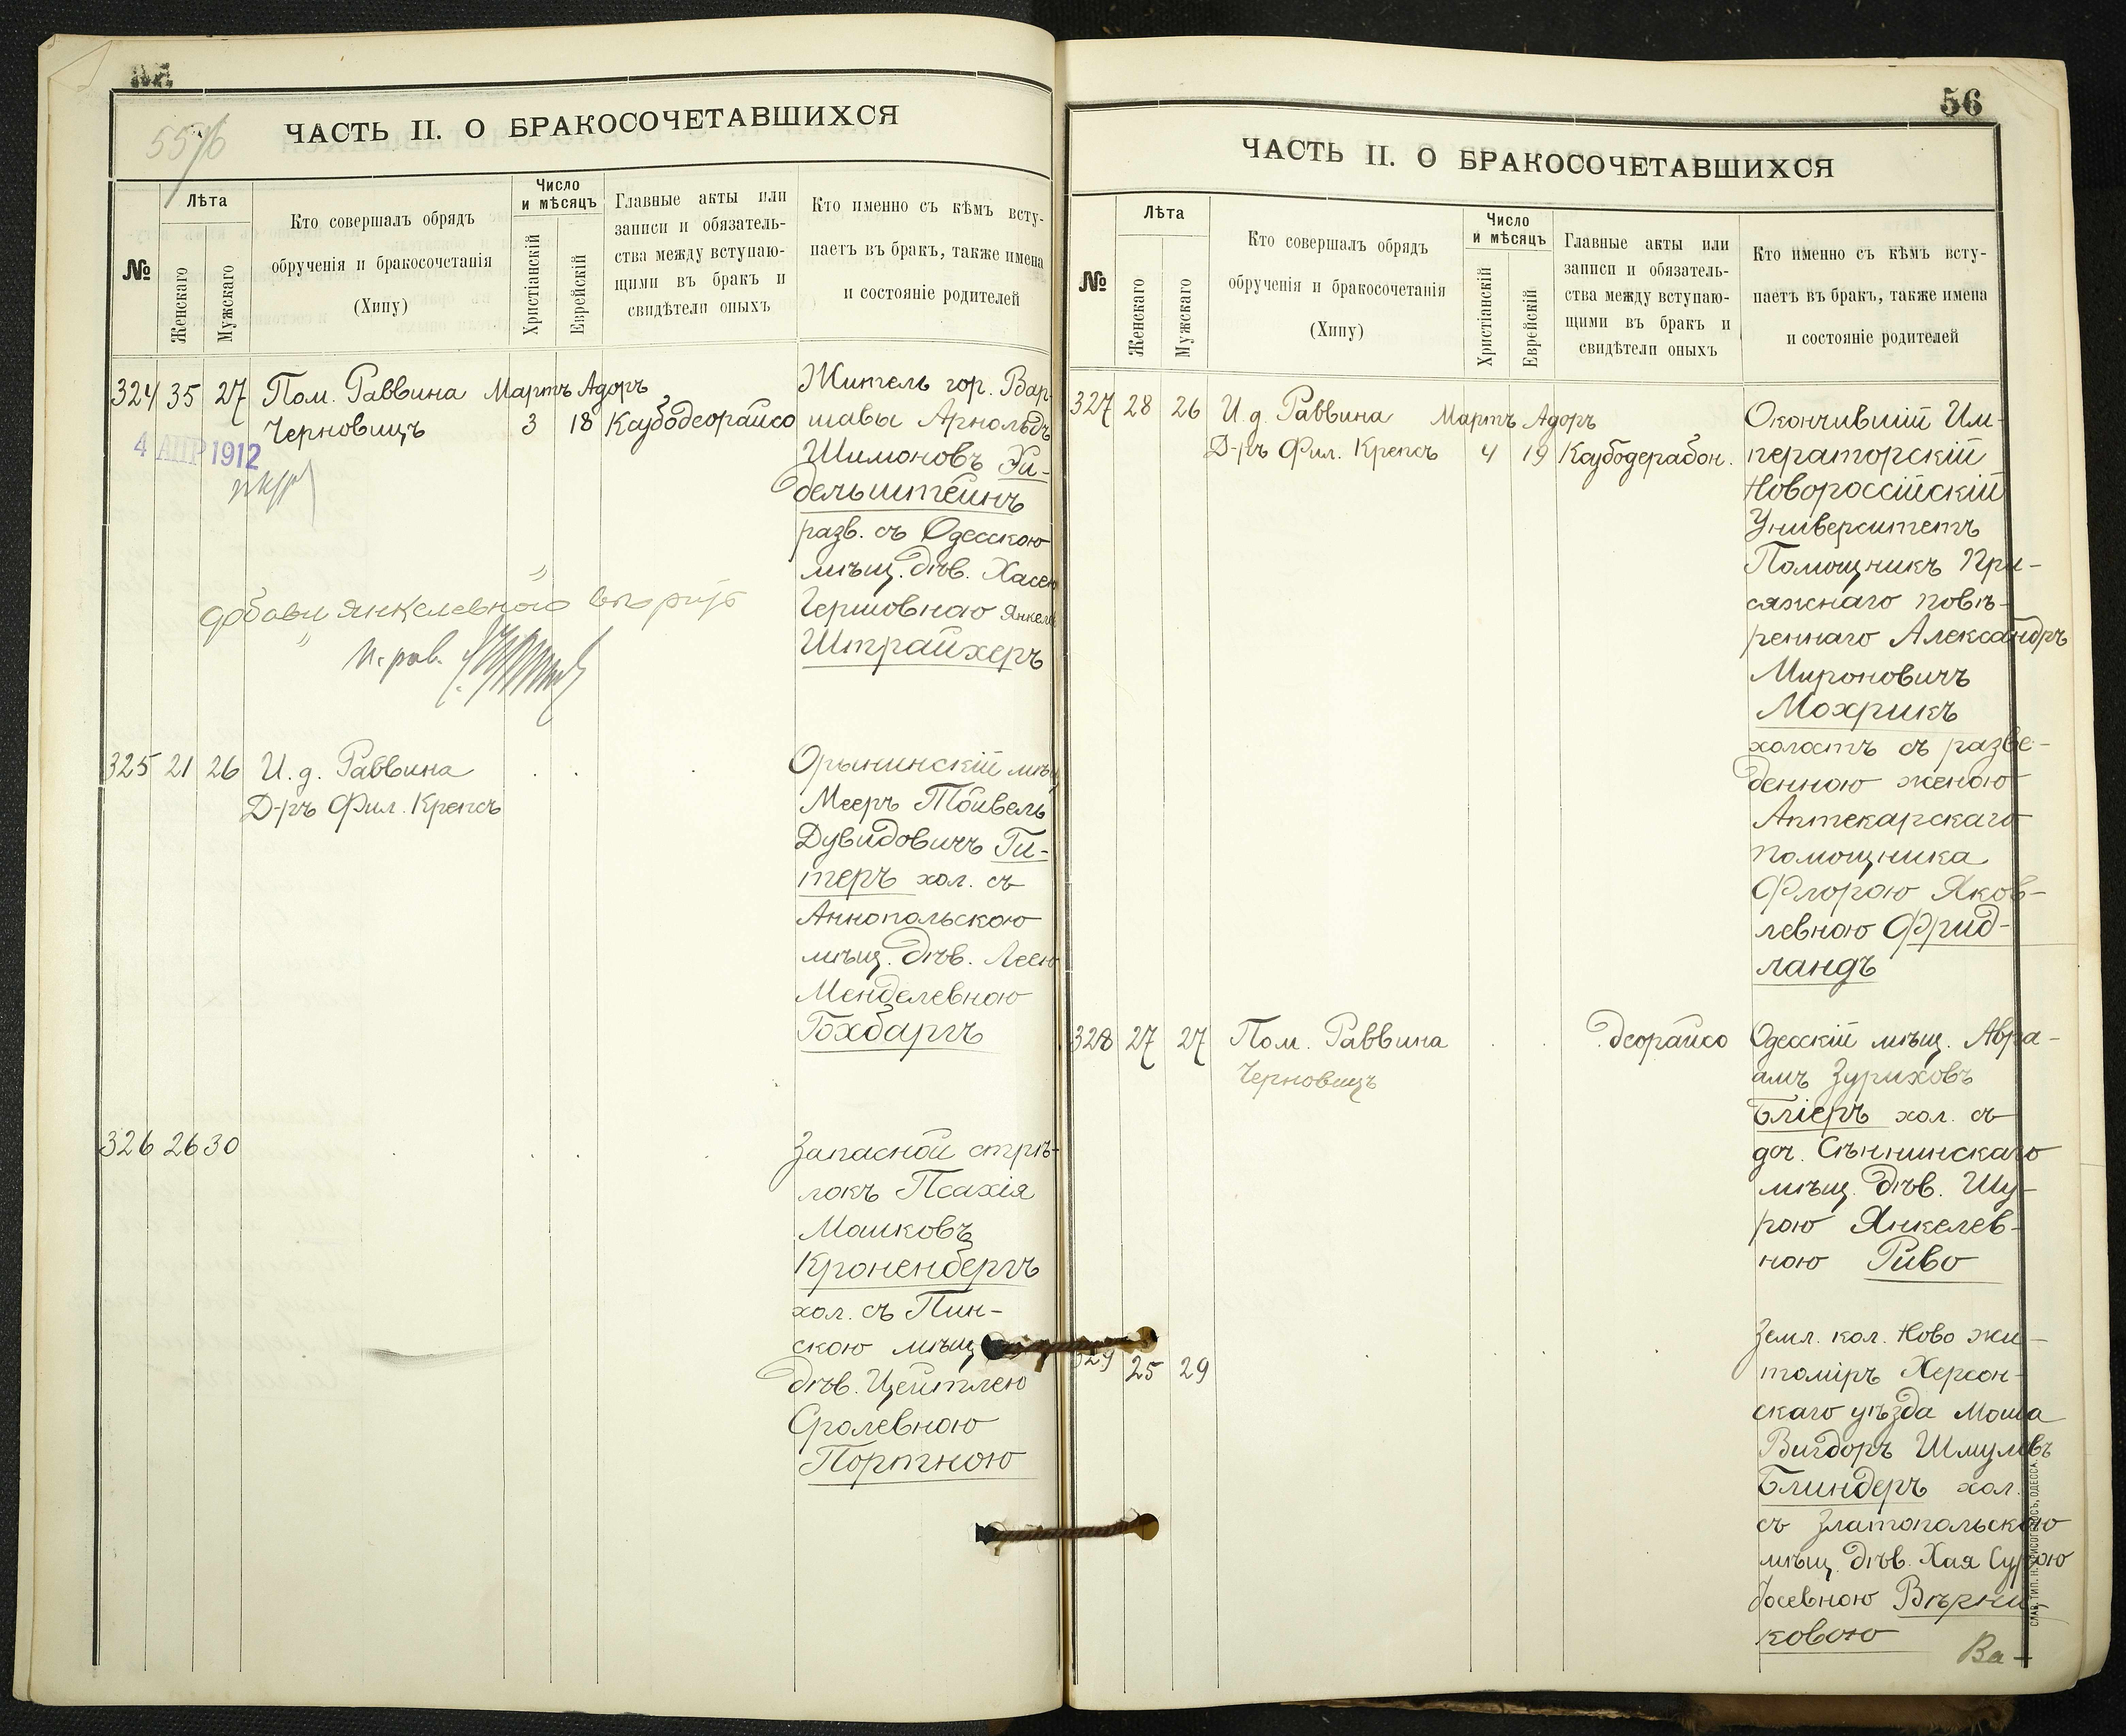 55
ЧАСТЬ II. О БРАКОСОЧЕТАВШИХСЯ
№
Лѣта
Женскаго
Мужскаго
Кто совершалъ обрядъ
обрученія и бракосочетанія
(Хипу)
Число
и мѣсяцъ
Христіанскій
Еврейскій
Главные акты или
записи и обязатель-
ства между вступаю-
щими въ бракъ и
свидѣтели оныхъ
Кто именно съ кѣмъ всту-
паетъ въ бракъ, также имена
и состояніе родителей
324 35 27 Пом. Раввина Мартъ Адоръ
Черновицъ 3 18 Каубодеорайсо
4 АПР 1912
Житель гор. Вар-
шавы Арнольдъ
Шимоновъ Хи-
дельштейнъ
разв. съ Одесскою
мѣщ. дѣв. Хасею
Гершовною Янкелев
Штрайхеръ
добави Янкелевною
325 21 26 И. д. Раввина
Д-ръ Фил. Крепсъ
Орынинскій мѣщ.
Мееръ Тойвель
Дувидовичъ Ги-
теръ хол. съ
Аннопольскою
мѣщ. дѣв. Леею
Менделевною
Гохбаргъ
326 26 30
Запасной стрѣ-
локъ Псахія
Мошковъ
Кроненбергъ
хол. съ Пин-
скою мѣщ
дѣв. Цейтлею
Сролевною
Портною
56
ЧАСТЬ II. О БРАКОСОЧЕТАВШИХСЯ
№
Лѣта
Женскаго
Мужскаго
Кто совершалъ обрядъ
обрученія и бракосочетанія
(Хипу)
Число
и мѣсяцъ
Христіанскій
Еврейскій
Главные акты или
записи и обязатель-
ства между вступаю-
щими въ бракъ и
свидѣтели оныхъ
Кто именно съ кѣмъ всту-
паетъ въ бракъ, также имена
и состояніе родителей
327 28 26 И. д. Раввина Мартъ Адоръ
Д-ръ Фил. Крепсъ 4 19 Каубодерабон.
Окончившій Им-
ператорскій
Новороссійскій
Университетъ
Помощникъ При-
сяжнаго повѣ-
реннаго Александръ
Мироновичъ
Мохрикъ
холостъ съ разве-
денною женою
Аптекарскаго
помощника
Флорою Яков-
левною Фрид-
ландъ
328 27 27 Пом. Раввина деорайсо
Черновицъ
Одесскій мѣщ. Авра-
амъ Зуриховъ
Бліеръ хол. съ
доч. Сѣннинскаго
мѣщ. дѣв. Шу-
рою Янкелев-
ною Риво
329 25 29
Земл. кол. Ново Жи-
томіръ Херсон-
скаго уѣзда Моша
Вигдоръ Шмулевъ
Блиндеръ хол.
съ Златопольскою
мѣщ. дѣв. Хая Сурою
Іосевною Вѣрни-
ковою
Ва-
СЛАВ. ТИП. Н. ХРИСОГЕЛОСЪ, ОДЕССА.